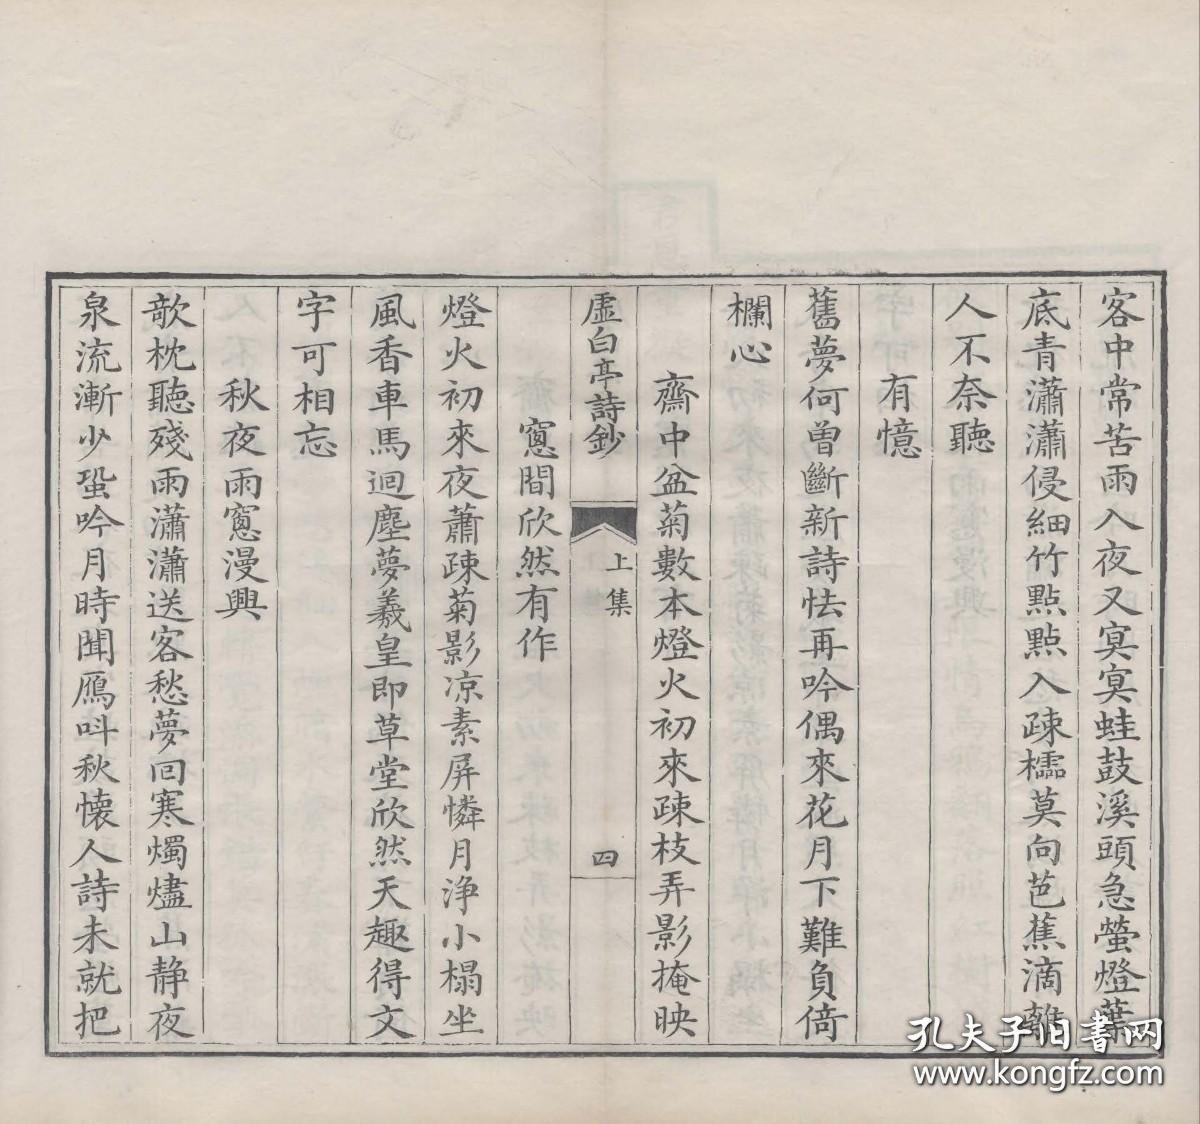 客中常苦雨入夜又冥冥蛙鼓溪頭急螢燈葉
底青瀟瀟侵細竹點點入疎櫺莫向芭蕉滴離
人不奈聽
有憶
舊夢何曾斷新詩怯再吟偶來花月下難負倚
欄心
齋中盆菊數本燈火初來疎枝弄影掩映
虛白亭詩鈔
上集
四
窻間欣然有作
燈火初來夜蕭疎菊影凉素屏憐月浄小榻坐
風香車馬迴塵夢羲皇即草堂欣然天趣得文
字可相忘
秋夜雨窻漫興
欹枕聽殘雨瀟瀟送客愁夢回寒燭燼山静夜
泉流漸少蛩吟月時聞鴈呌秋懷人詩未就把
孔夫子旧書网
www.kongfz.com